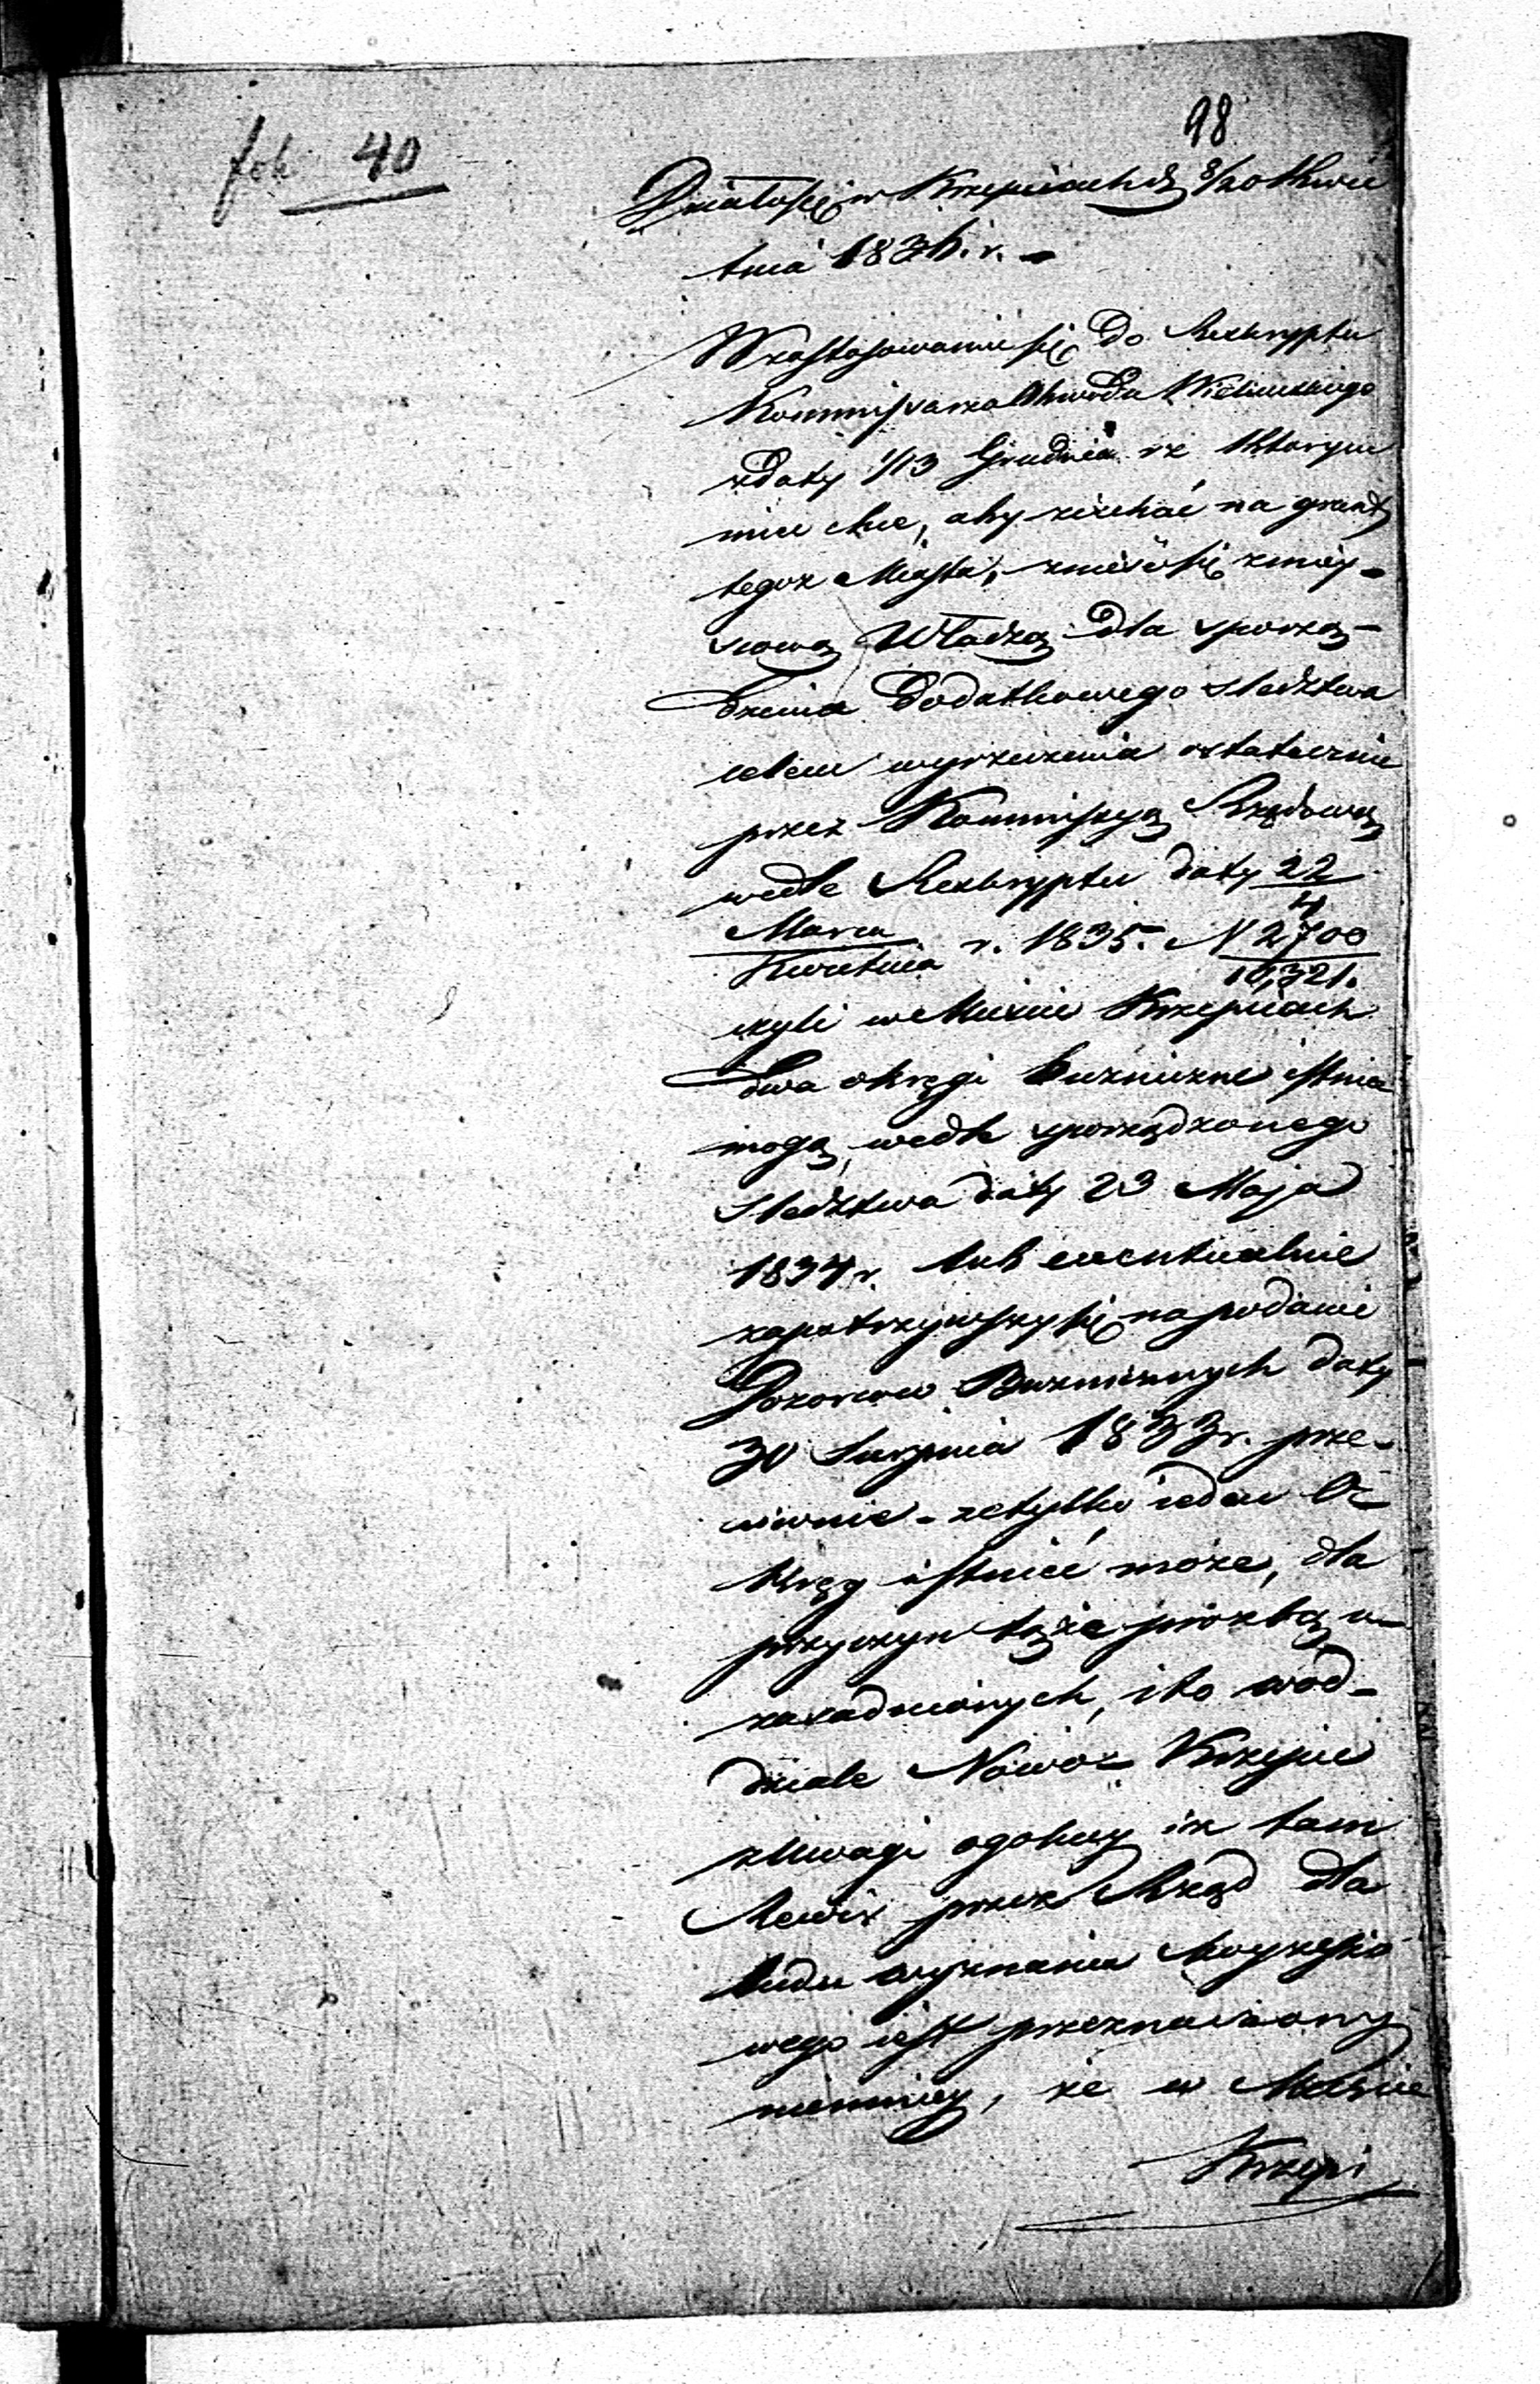 98
fol. 40
Działo się w Krzepicach d. 8/20 Kwie
tnia 1836. r. –
W zastosowaniu się do Reskryptu
Kommissarza Obwodu Wieluńskiego
z daty 1/13 Grudnia rz którym
mieć chce, aby ziechać na grunt
tegoż Miasta, znieść się z miey-
scową Władzą dla sporzą-
dzenia dodatkowego sledztwa
celem wyrzeczenia ostatecznie
przez Kommissyą Rządową
wedle Reskryptu daty 22/4
Marca/Kwietnia r. 1835. N 2700/10,321.
czyli w Mieście Krzepicach
dwa okręgi bużniczne istnieć
mogą, wedle sporządzonego
sledztwa daty 23 Maja
1834 r. lub ewentualnie
zapatrzywszy się na podanie
Dozorców Bużnicznych daty
30 Sierpnia 1833 r. prze-
ciwnie – że tylko ieden O-
kręg istnieć może, dla
przyczyn tąże proźbą u-
zasadnionych, i to w od-
dziale Nowo – Krzepice
z Uwagi ogolney iż tam
Rewir przez Rząd dla
ludu wyznania Moyżeszo
wego iest przeznaczony
niemniey, że w Mieście
Krzepi